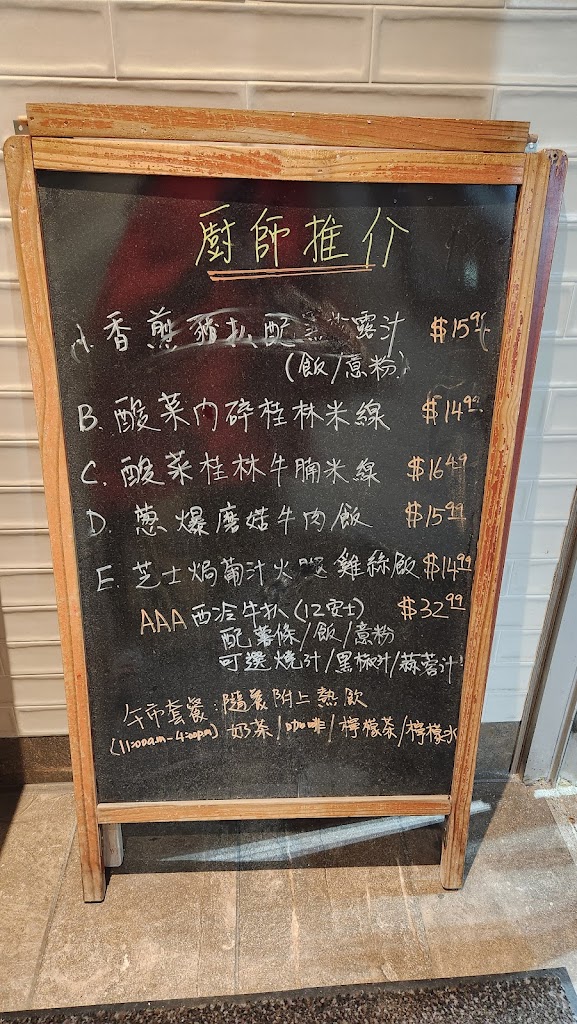 廚師推介
A. 香煎豬扒配黑松露汁 $15.99
(飯/意粉)
B. 酸菜肉碎桂林米線 $14.99
C. 酸菜桂林牛腩米線 $16.49
D. 蔥爆磨菇牛肉飯 $15.99
E. 芝士焗葡汁火腿雞絲飯 $14.99
AAA 西冷牛扒 (12安士) $32.99
配薯條/飯/意粉
可選燒汁/黑椒汁/蒜蓉汁
午市套餐:隨餐附上熱飲
(11:00am-4:00pm) 奶茶/咖啡/檸檬茶/檸檬水